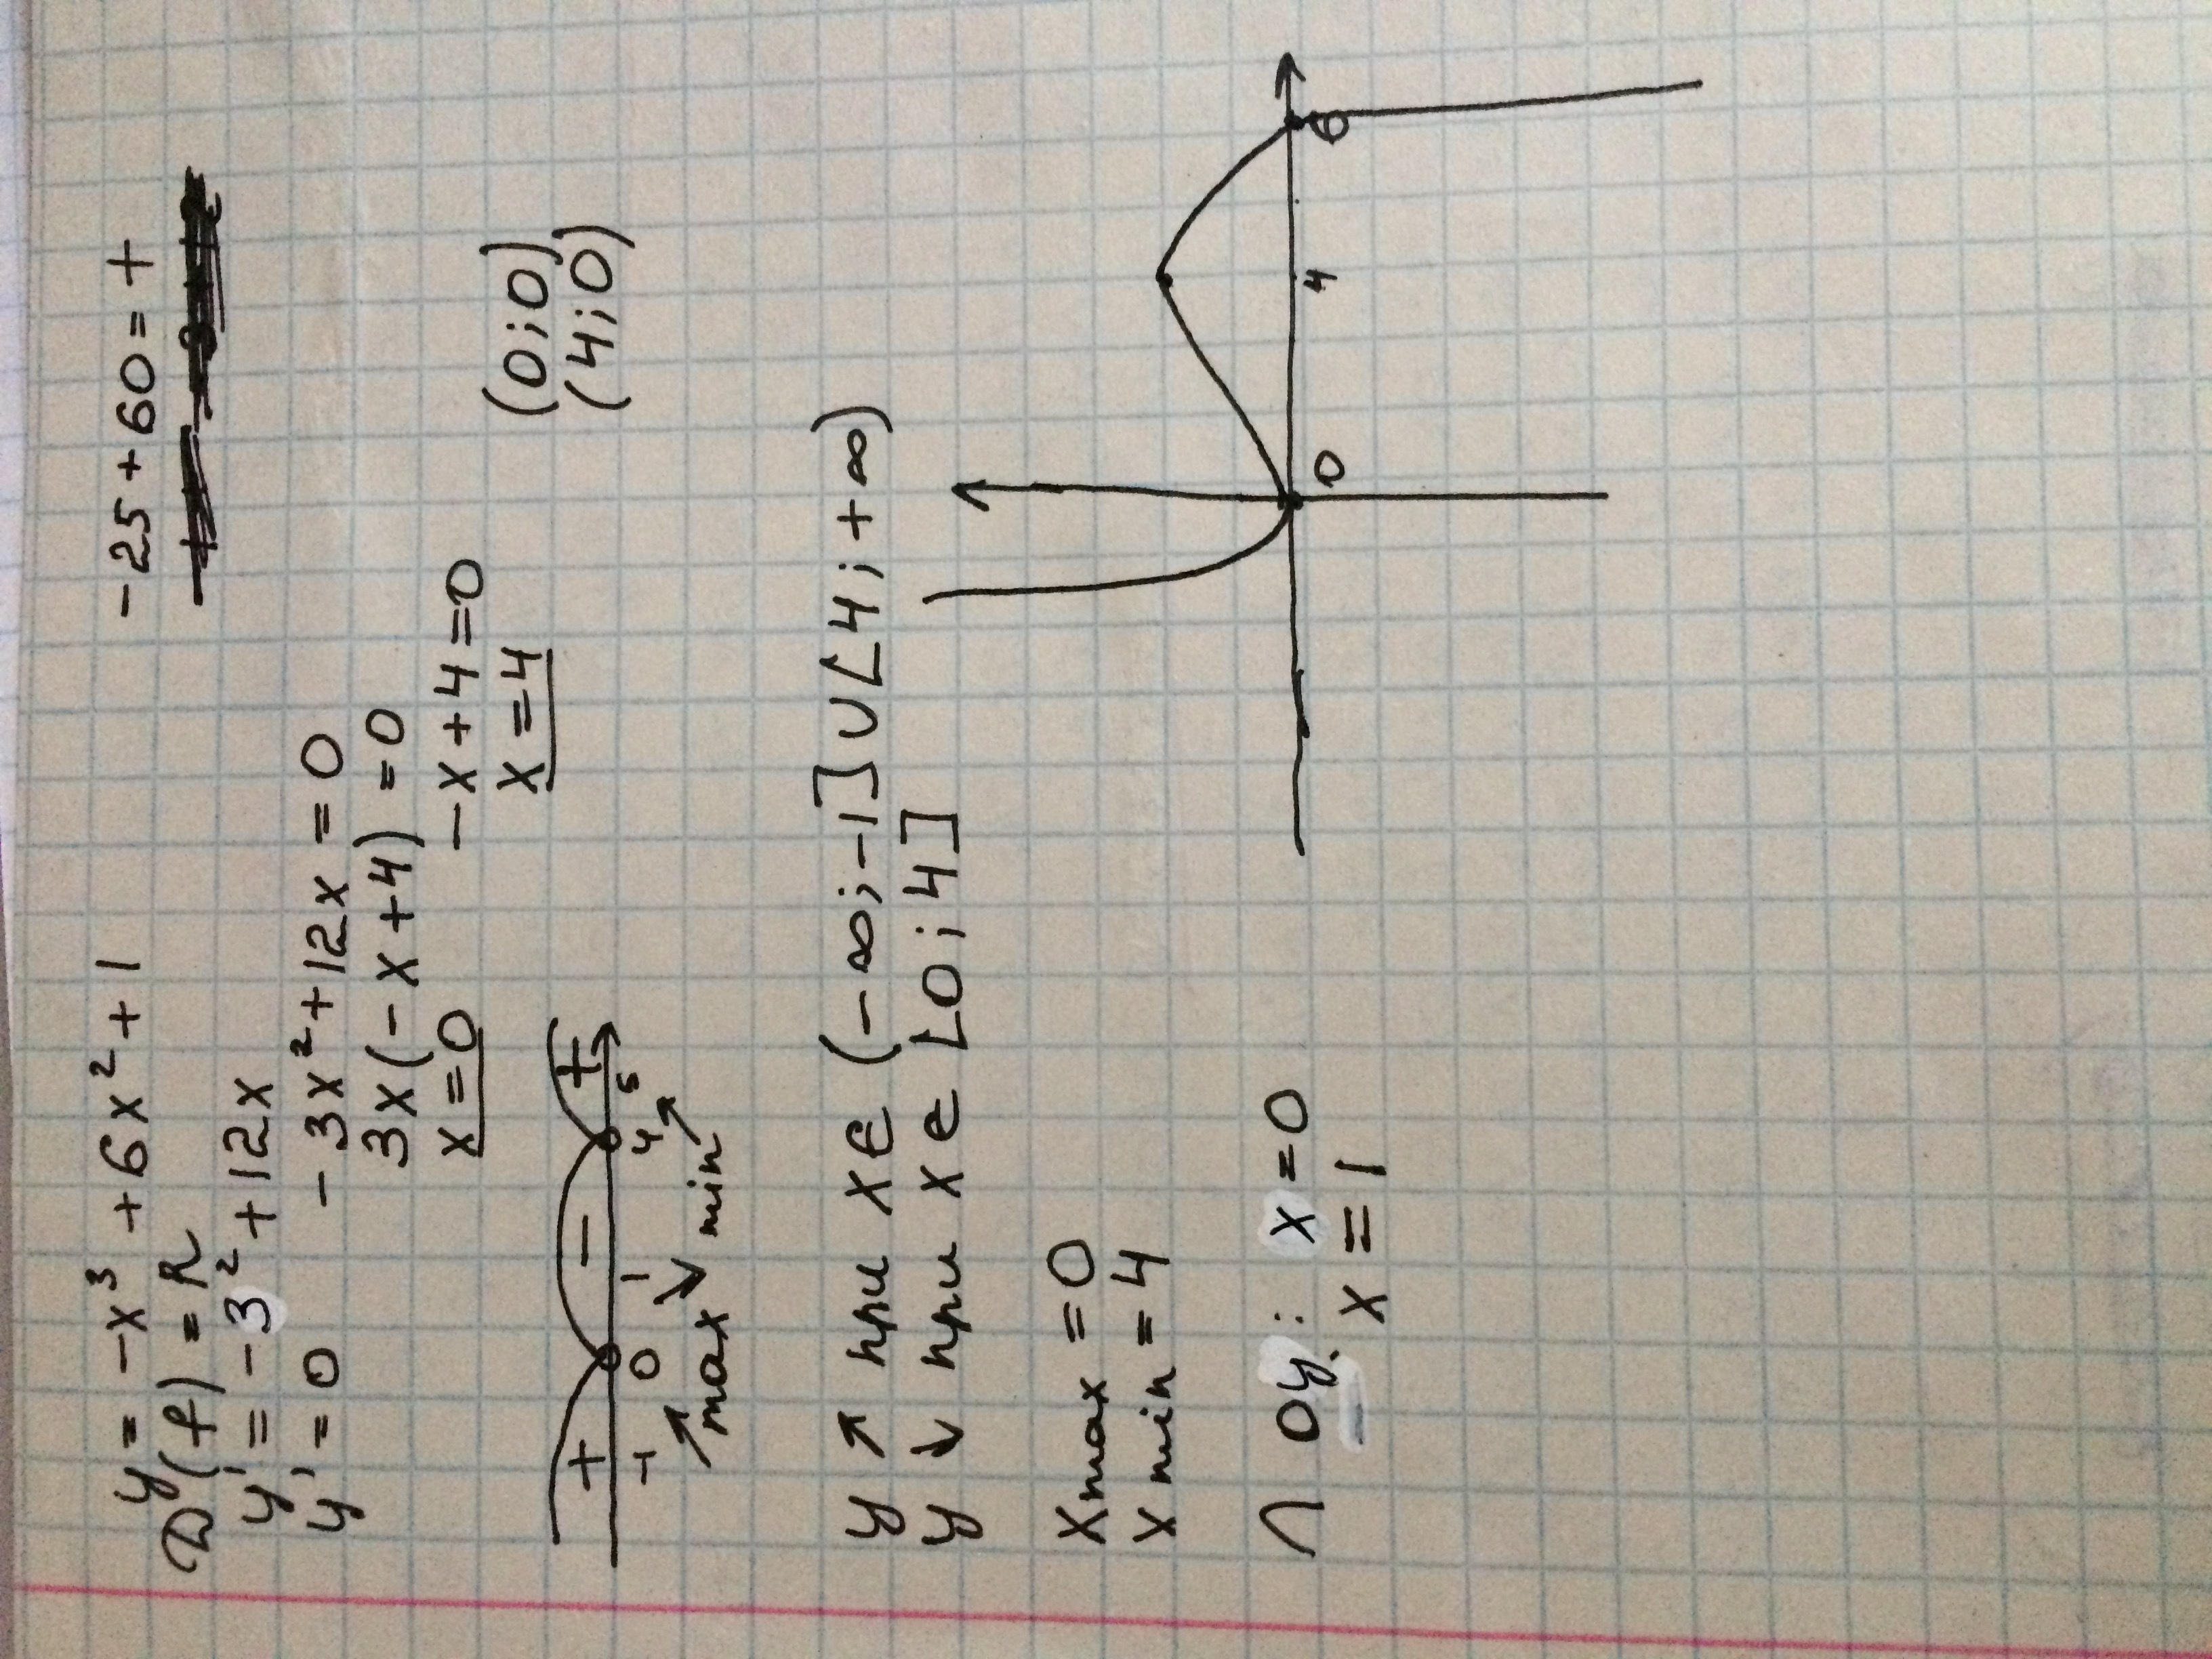 y = -x³ + 6x² + 1
-25 + 60 = +
D(f) = R
y' = -3² + 12x
y' = 0
-3x² + 12x = 0
3x(-x + 4) = 0
x = 0
-x + 4 = 0
x = 4
(0; 0)
(4; 0)
+ - +
-1 0 1 4 5
max min
y ↗ при x ∈ (-∞; -1] ∪ [4; +∞)
y ↘ при x ∈ [0; 4]
x max = 0
x min = 4
∩ oy: x = 0
x = 1
0 4 6